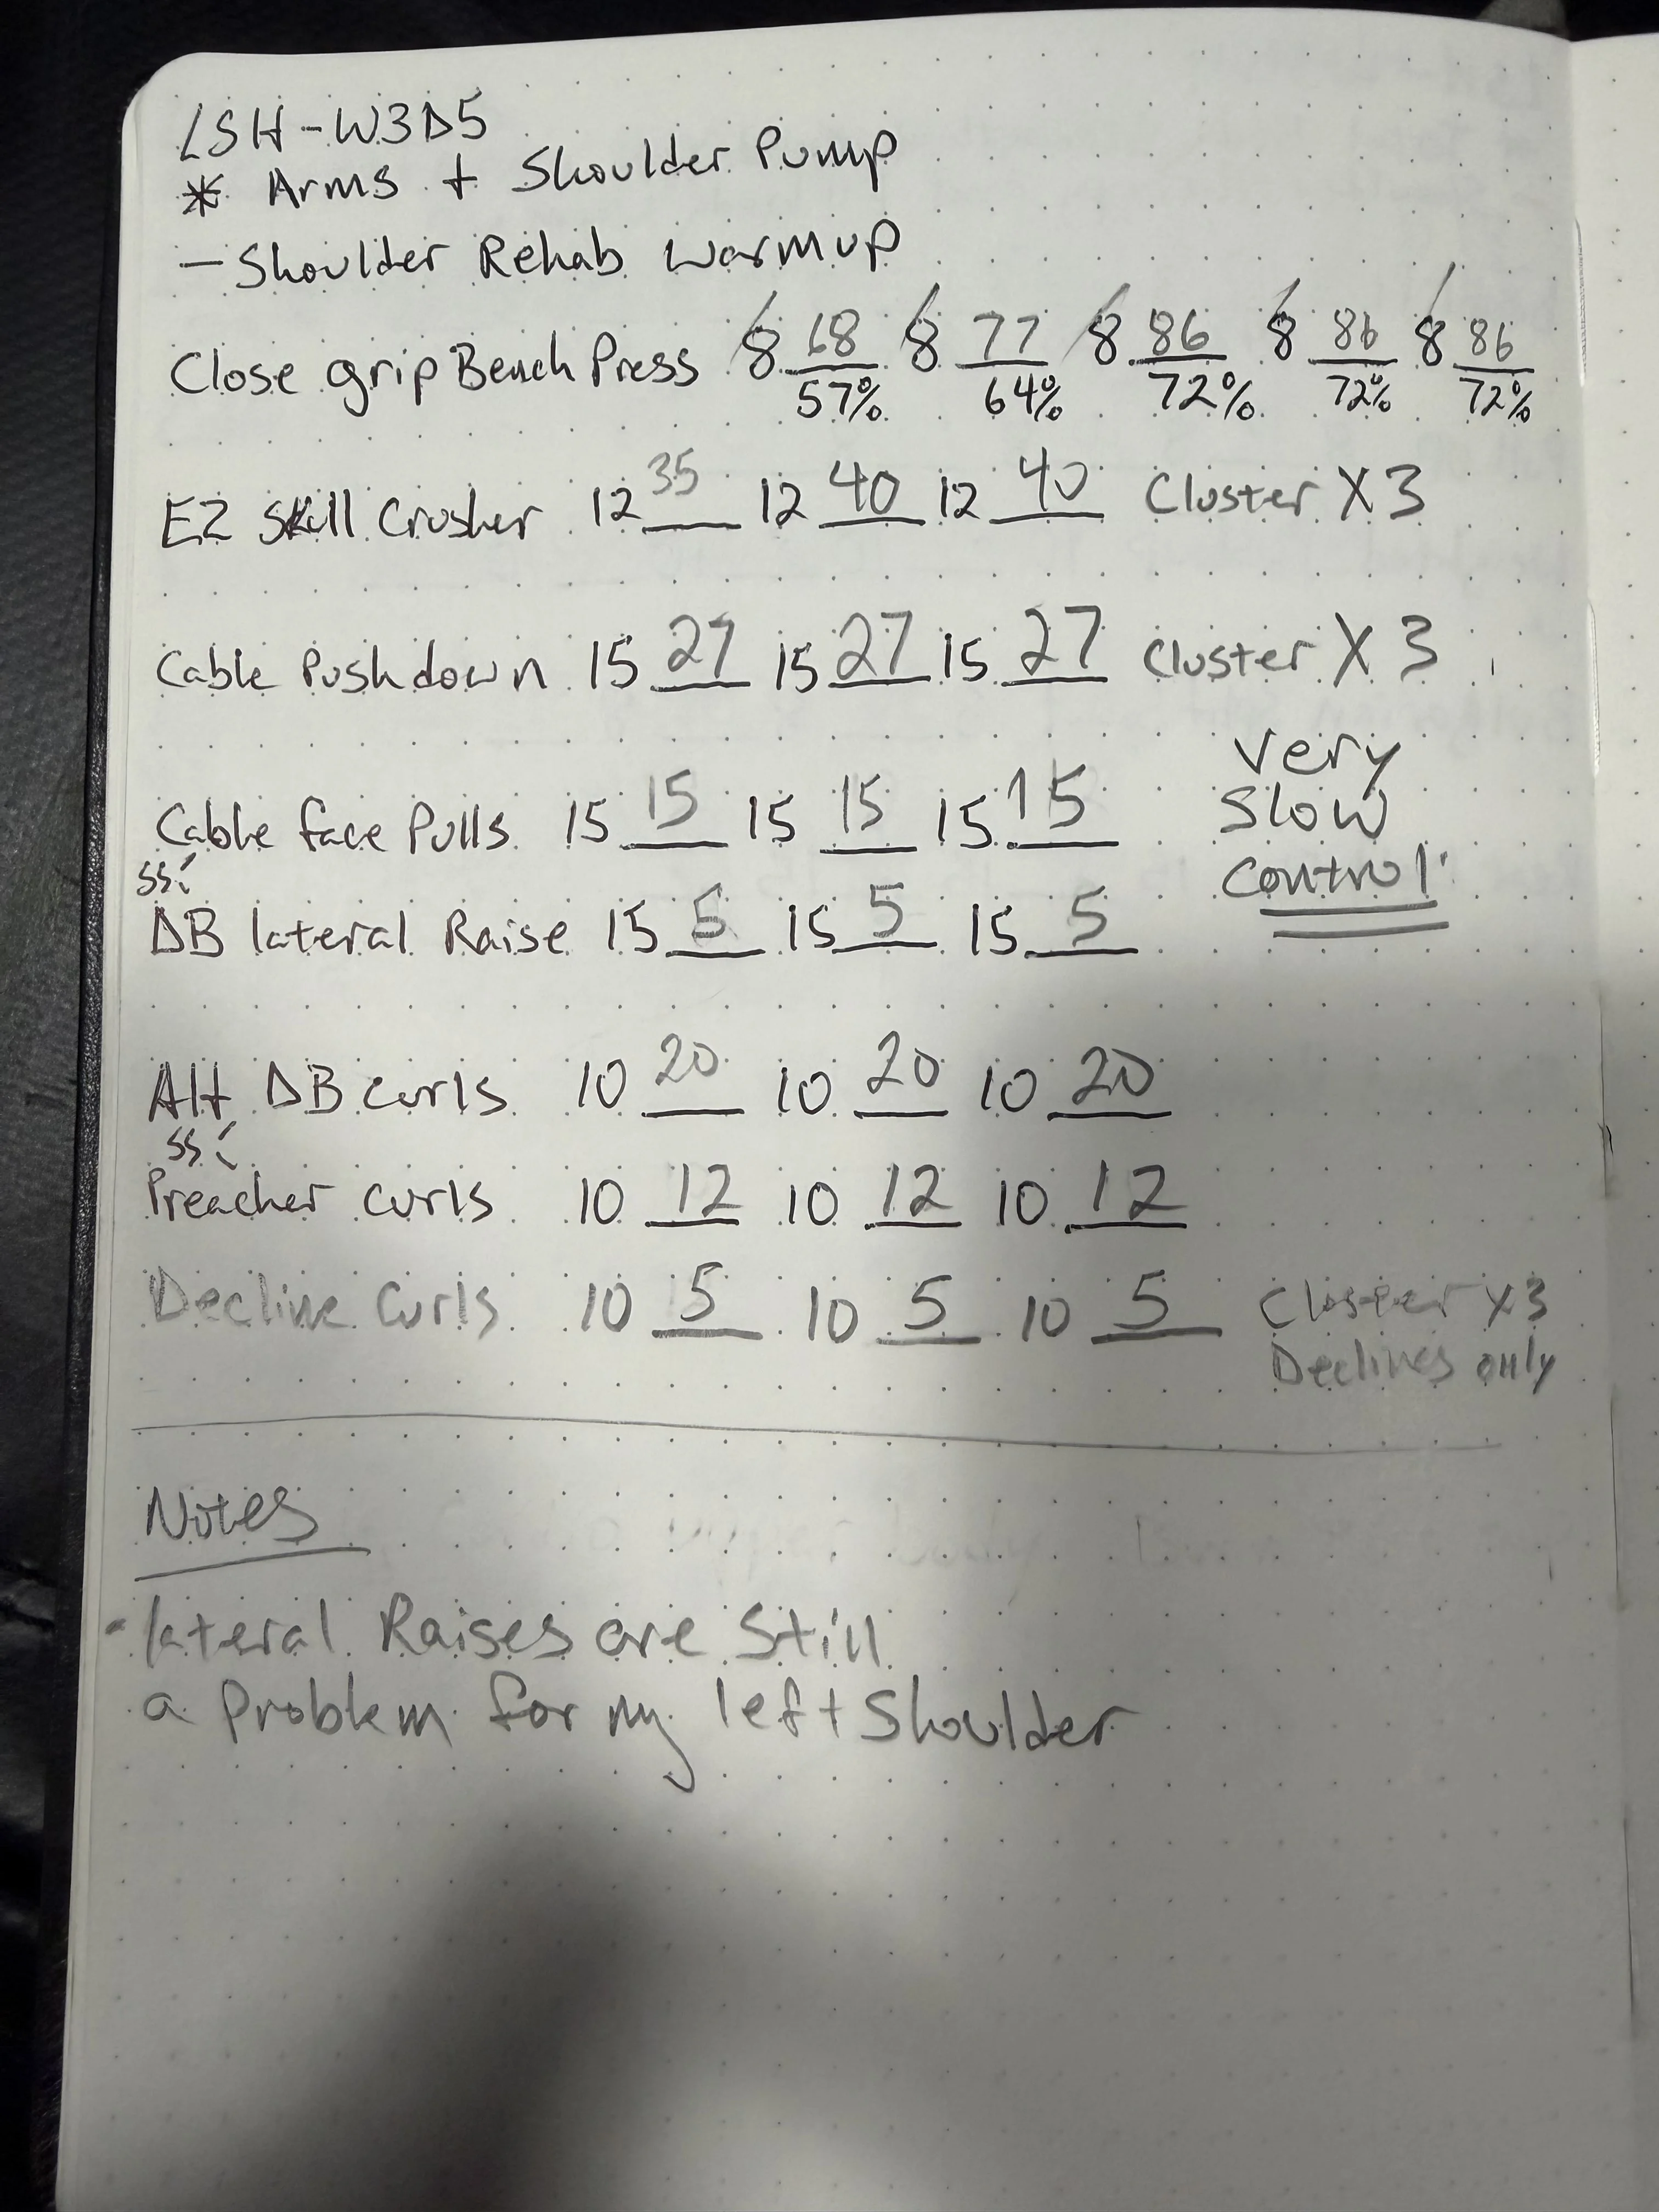 LSH-W3D5
* Arms + Shoulder Pump
- Shoulder Rehab warmup
Close grip Bench Press 8 68 8 77 8 86 8 86 8 86
57% 64% 72% 72% 72%
EZ Skull Crusher 12 35 12 40 12 40 Cluster X 3
Cable Pushdown 15 27 15 27 15 27 Cluster X 3
Cable face Pulls 15 15 15 15 15 15
very
Slow
Control
SS:
DB lateral Raise 15 5 15 5 15 5
Alt DB curls 10 20 10 20 10 20
SS:
Preacher curls 10 12 10 12 10 12
Decline Curls 10 5 10 5 10 5 Cluster X3
Declines only
Notes
- lateral Raises are Still
a Problem for my left Shoulder